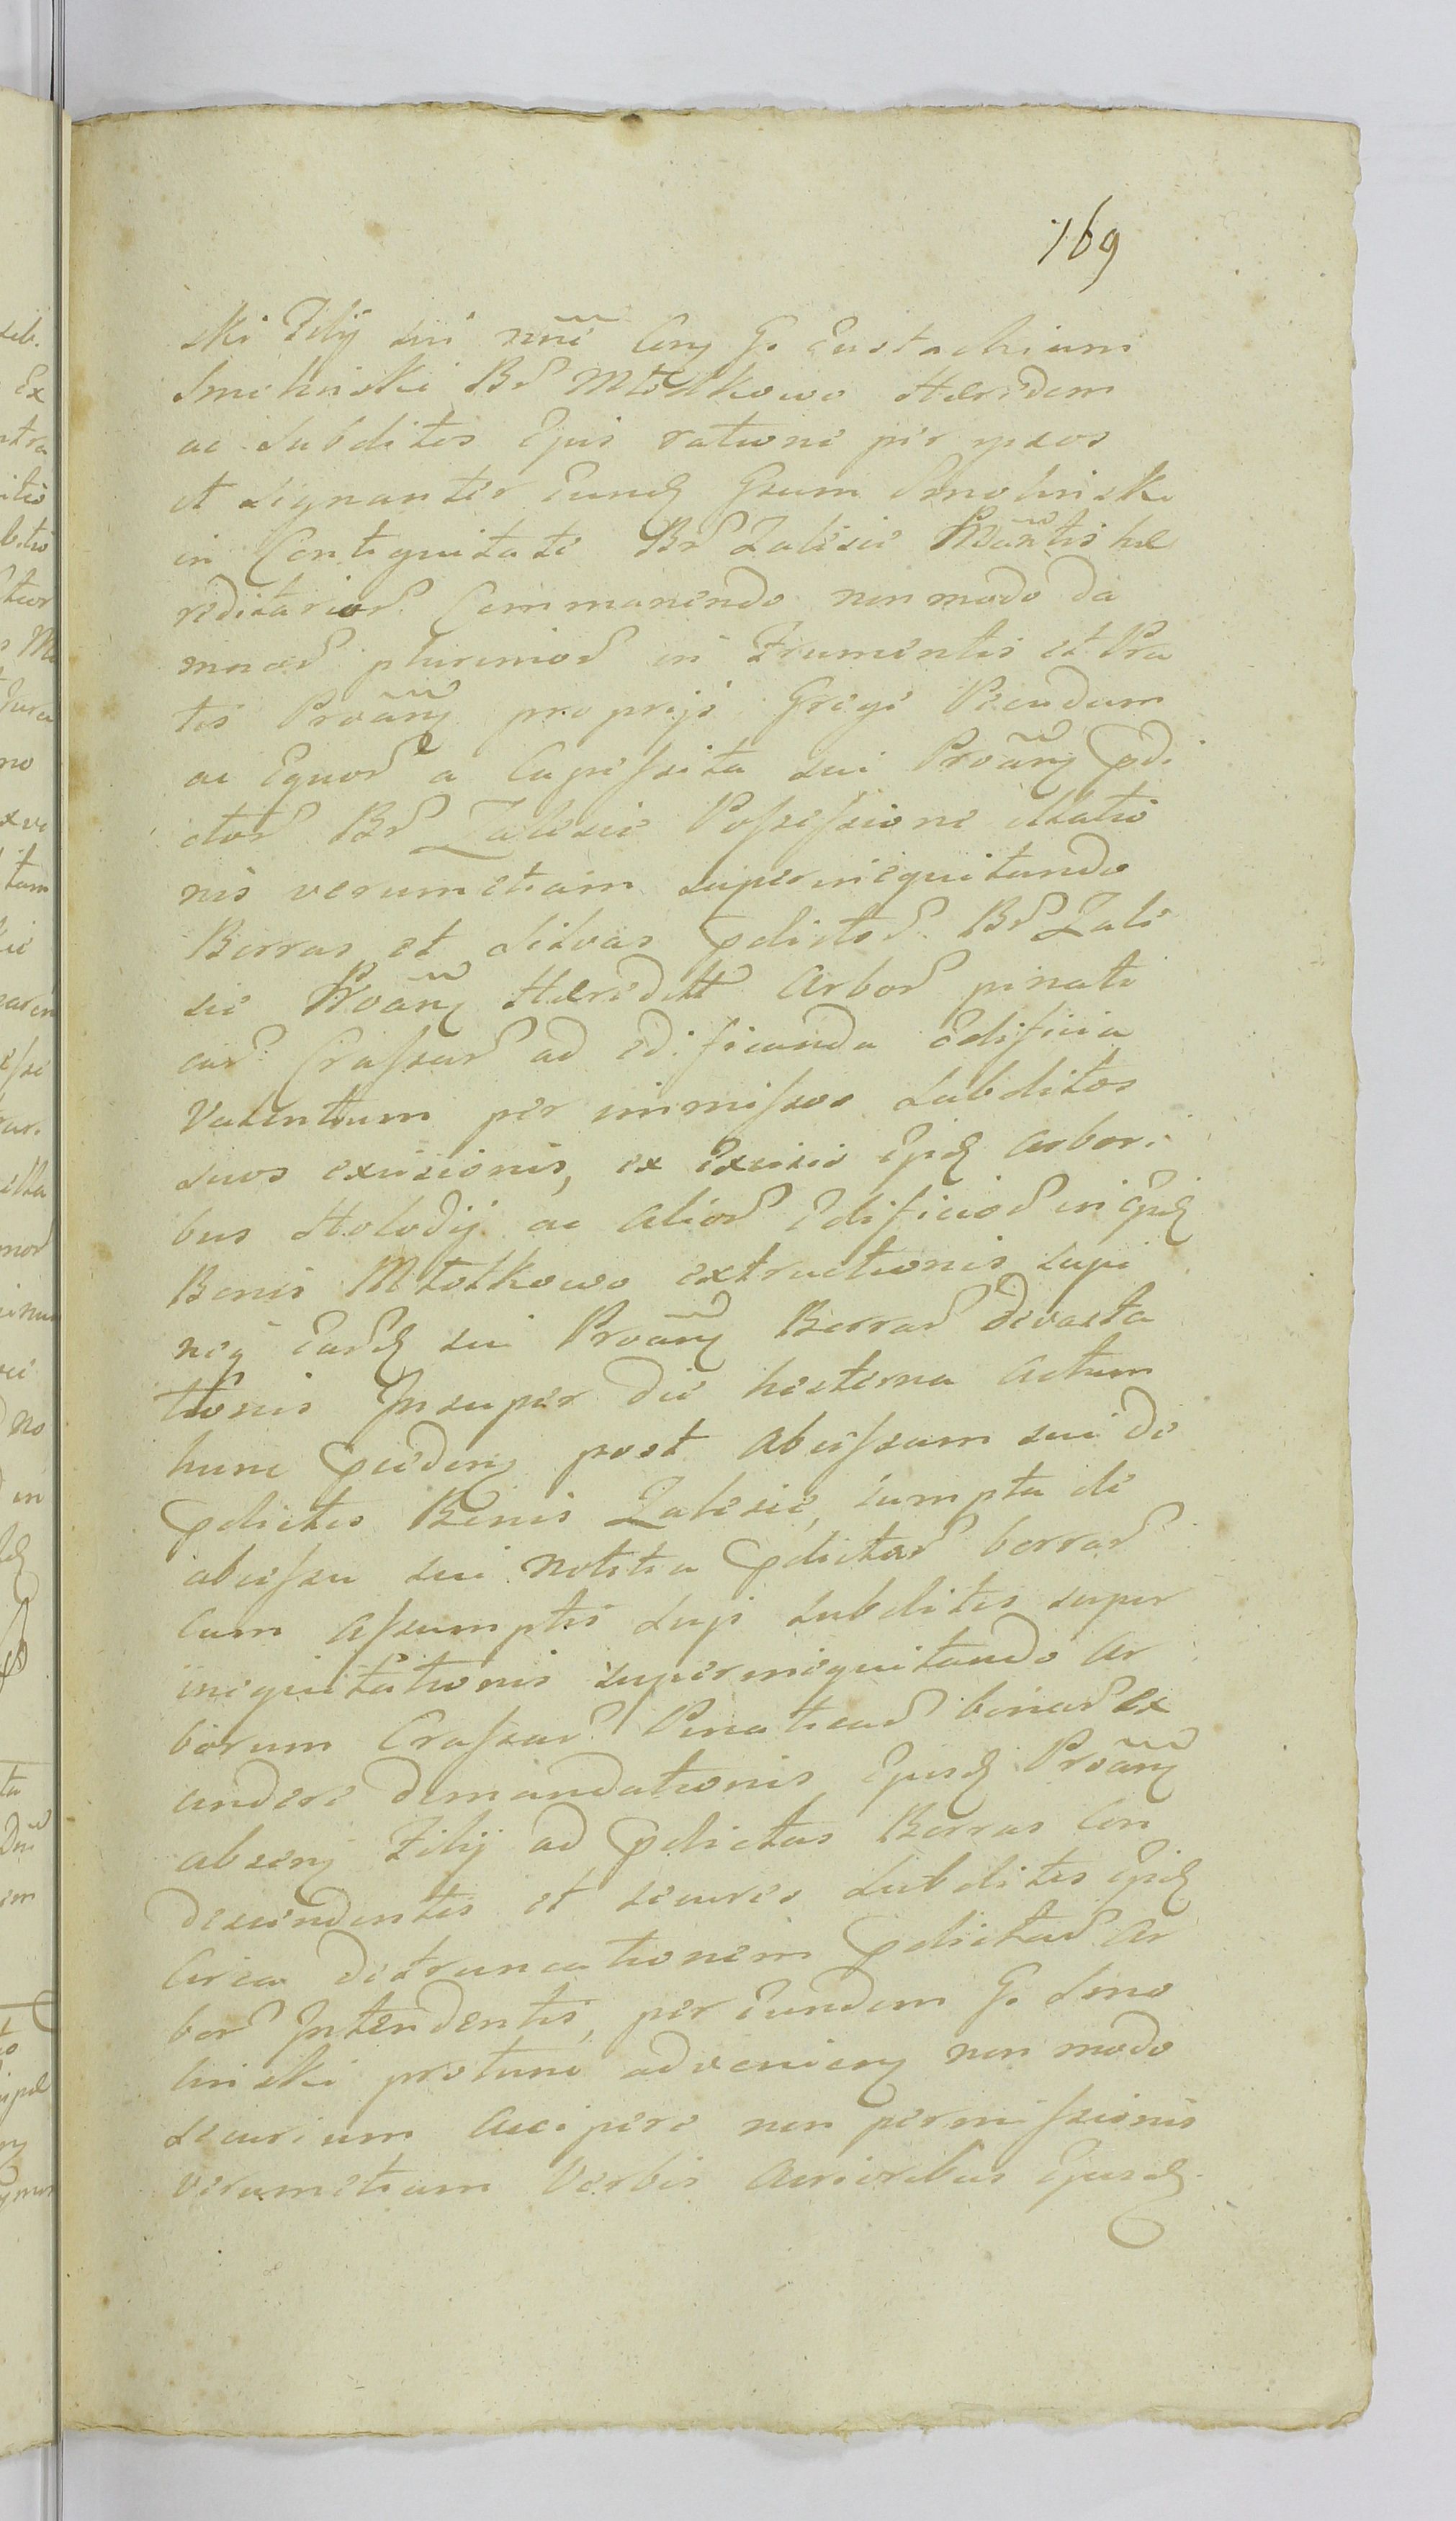 169
ski Filij sui nñe Cong G. Eustachium
Smoliński Br Młotkowo Hæredem
ac Subditos Ejus ratione per ipsos
et signanter Eundq Gsum Smolinski
in Contiguitate Br Zalesie hæ
reditarior Commanendo non modo da
mnor plurimor in Frumentis et Pra
tis Proãnq proprijs Grege Pecudum
ac Equor a Capessita sui Proãnq pdi
ctor Br Zalesie Possessione illatio
nis verumetiam superinequitando
Borras et Silvas pdictor Br Zale
sie Proãnq Hæredit Arbor pinati
car Crassar ad edificanda Edificia
Valentium per immissos Subditos
suos excisionis, ex Excisis Ejsdq arbori
bus Stolodij ac alior Edificior in Ejsdq
Bonis Młotkowo extructionis supi
neq Eardq sui Proãnq Borrar devasta
tionis Insuper die hesterna Actum
hunc pcedenq post abcessum sui de
pdictis Bonis Zalesie, sumpta de
abcessu sui notitia pdictar borrar
cum assumptis supi subditis super
inequitationis superinequitando ar
borum Crassar Pinaticar binar ex
cindere demandationis Ejusdq Proãnq
absenq Filij ad pdictas Borras Con
descendentis et secures Subditis Ejsdq
Circa detruncationem pdictar Ar
bor Intendentis, per Eundem G. Smo
linski protunc advenienq non modo
securium accipere non permissionis
verumetiam Verbis acrioribus Ejusdq